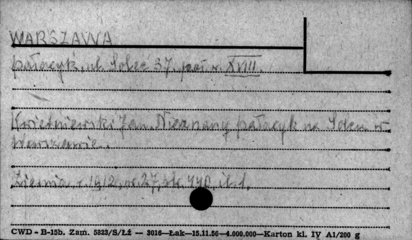 WARSZAWA
pałacyk, ul. Solec 37, poł. w. XVIII.
Kwietniewski Jan. Nieznany pałacyk na Solcu w
Warszawie.
Ziemia, r. 1912, nr 27, str. 440, il. 1.
CWD - B-15b. Zam. 5823/S/ŁŻ — 3016—Łak—15.11.56—4.000.000—Karton kl. IV A1/200 g